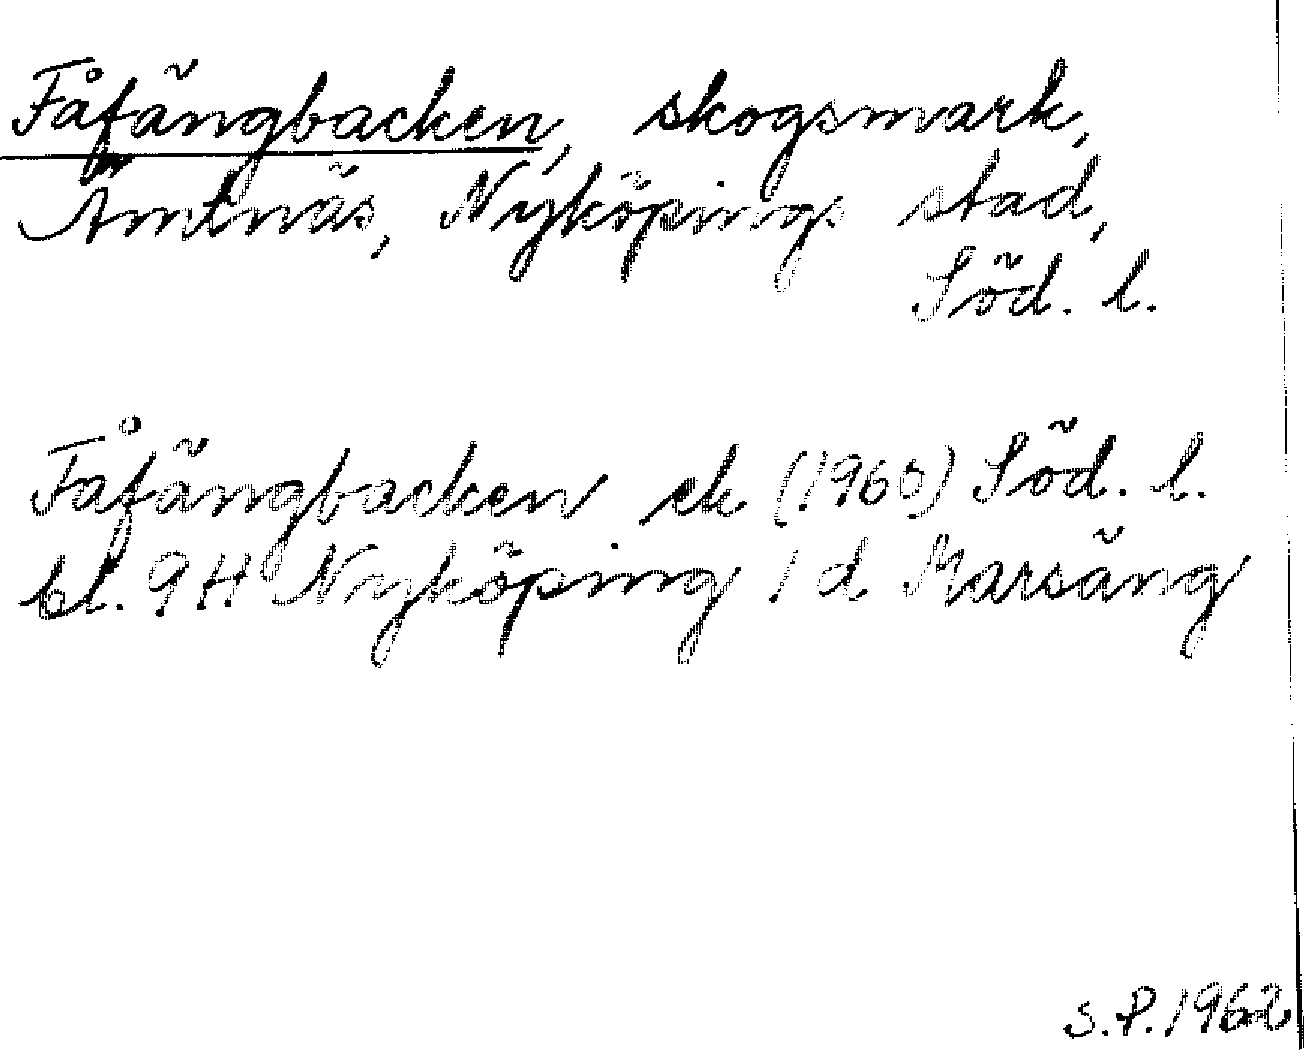 Fåfängbacken, skogsmark,
Ämtnäs, Nyköpings stad,
Söd. l.
Fåfängbacken ek (1960) Söd. l.
bl. 9H Nyköping 1d Marsäng
S.P. 1962